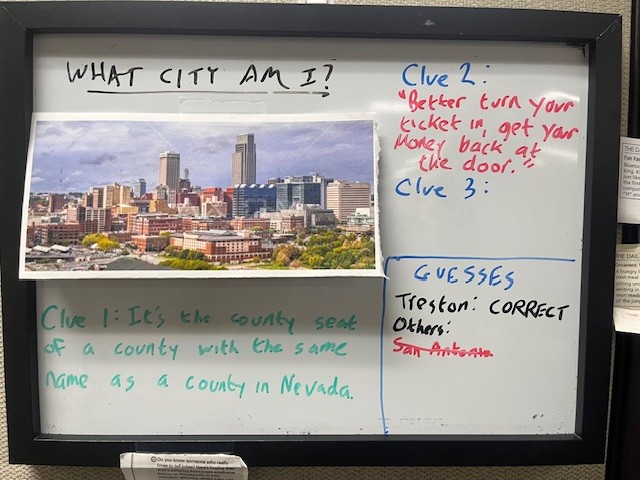 WHAT CITY AM I?
Clue 2:
"Better turn your
ticket in, get your
Money back at
the door."
Clue 3:
GUESSES
Treston: CORRECT
Others:
San Antonio
Clue 1: It's the county seat
of a county with the same
name as a county in Nevada.
Do you know someone who really
THE DAIL
THE DAIL